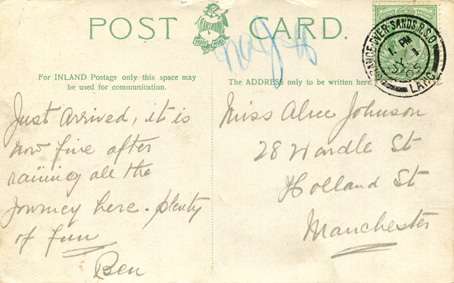 POST CARD.
For INLAND Postage only this space may
be used for communication.
The ADDRESS only to be written here.
GRANGE-OVER-SANDS.R.S.O.
LANC.
1 PM
JY 1
Just arrived, it is
now fine after
raining all the
journey here. plenty
of fun
Ben
Miss Alice Johnson
28 Wardle St
Holland St
Manchester